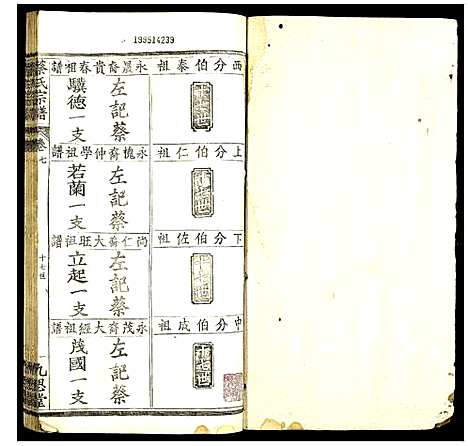 199514239
西分伯泰祖
十七世
永晟裔貴春祖譜
左記蔡
驥德一支
上分伯仁祖
十七世
永槐裔仲學祖譜
左記蔡
若蘭一支
下分伯佐祖
十七世
尚仁裔大旺祖譜
左記蔡
立起一支
中分伯成祖
十七世
永茂裔大經祖譜
左記蔡
茂國一支
蔡氏宗譜
卷七
十七世
九思堂